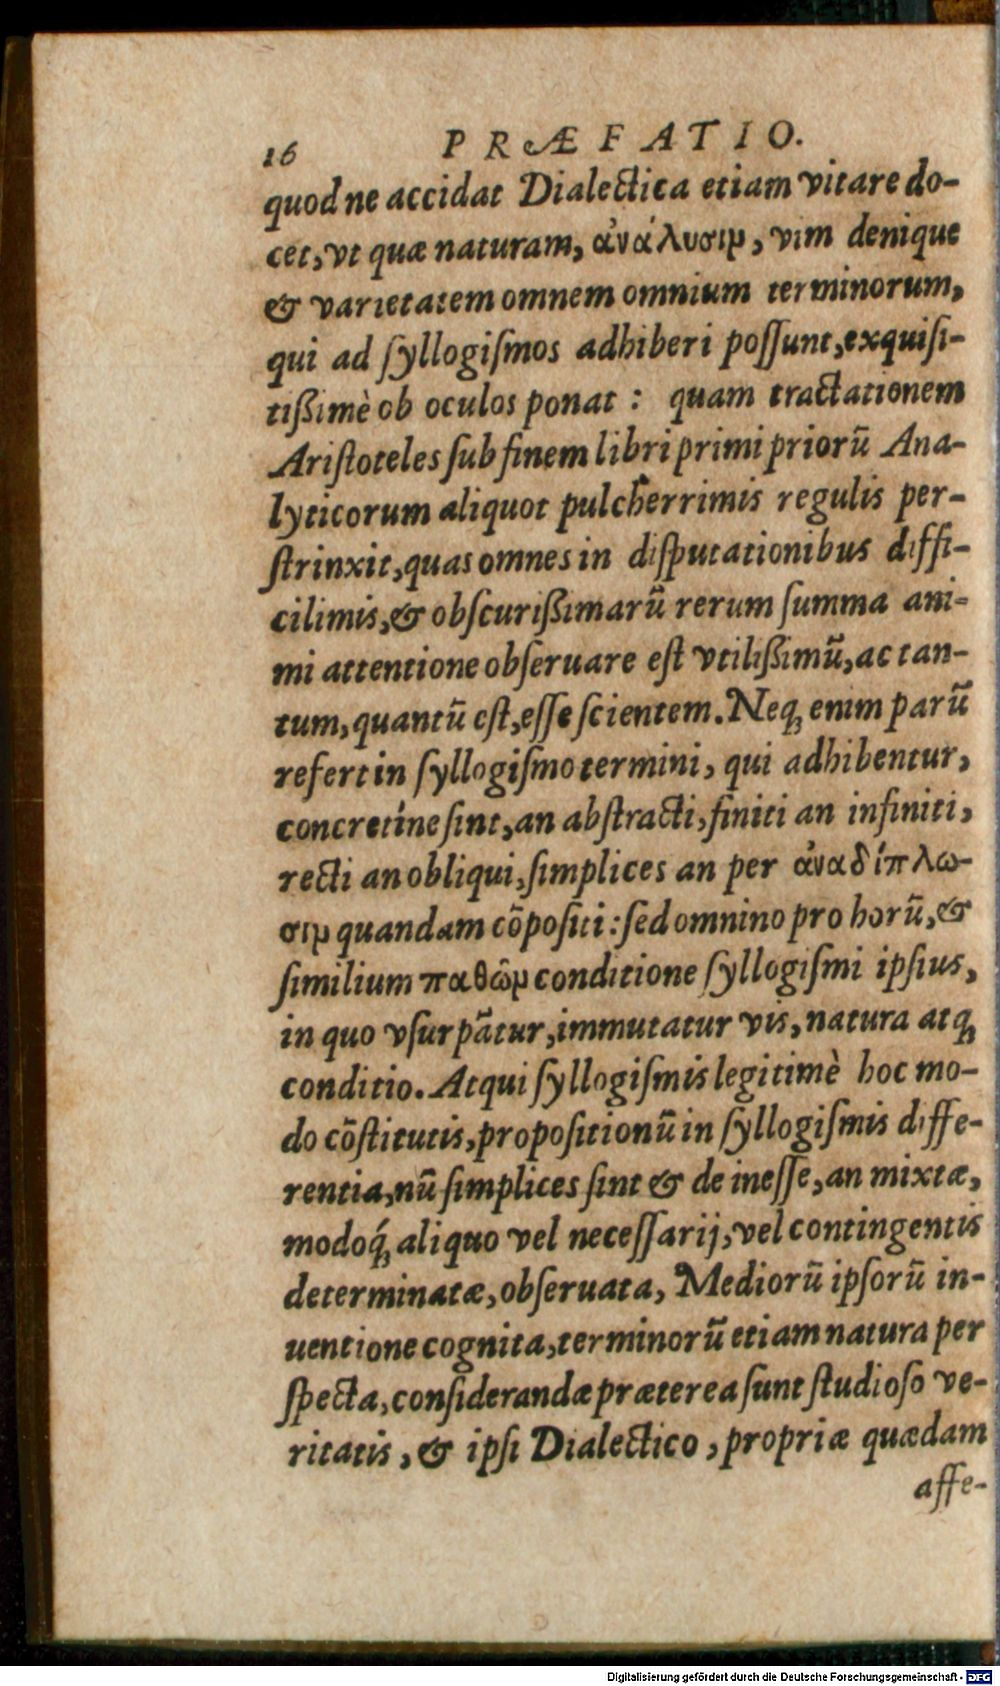 16 PRÆFATIO.
quod ne accidat Dialectica etiam vitare do-
cet, vt quæ naturam, ἀνάλυσιμ, vim denique
& varietatem omnem omnium terminorum,
qui ad ſyllogiſmos adhiberi poſſunt, exquiſi-
tißimè ob oculos ponat : quam tractationem
Ariſtoteles ſub finem libri primi priorũ Ana-
lyticorum aliquot pulcherrimis regulis per-
ſtrinxit, quas omnes in diſputationibus diffi-
cilimis, & obſcurißimarũ rerum ſumma ani-
mi attentione obſeruare eſt vtilißimũ, ac tan-
tum, quantũ eſt, eſſe ſcientem. Neq́; enim parũ
refert in ſyllogiſmo termini, qui adhibentur,
concretíne ſint, an abſtracti, finiti an infiniti,
recti an obliqui, ſimplices an per ἀναδίπλω-
σιμ quandam cõpoſiti : ſed omnino pro horũ, &
ſimilium παθῶμ conditione ſyllogiſmi ipſius,
in quo vſurpãtur, immutatur vis, natura atq;
conditio. Atqui ſyllogiſmis legitimè hoc mo-
do cõſtitutis, propoſitionũ in ſyllogiſmis diffe-
rentia, nũ ſimplices ſint & de ineſſe, an mixtæ,
modoq́; aliquo vel neceſſarij, vel contingentis
determinatæ, obſeruata, Mediorũ ipſorũ in-
uentione cognita, terminorũ etiam natura per
ſpecta, conſiderandæ præterea ſunt ſtudioſo ve-
ritatis, & ipſi Dialectico, propriæ quædam
affe-
Digitalisierung gefördert durch die Deutsche Forschungsgemeinschaft - DFG